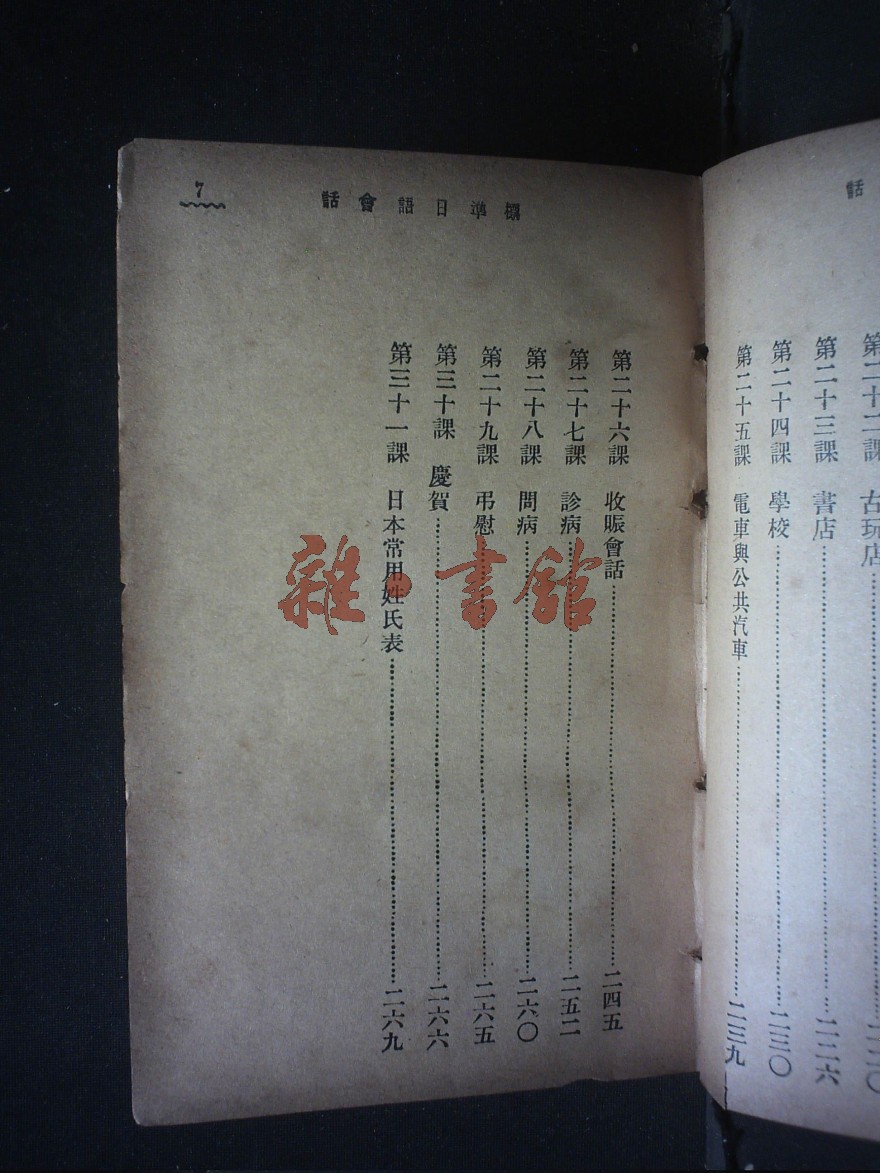 話
第二十二課 古玩店……二二〇
第二十三課 書店……二二六
第二十四課 學校……二三〇
第二十五課 電車與公共汽車……二三九
標準日語會話
7
第二十六課 收賬會話……二四五
第二十七課 診病……二五二
第二十八課 問病……二六〇
第二十九課 弔慰……二六五
第三十課 慶賀……二六六
第三十一課 日本常用姓氏表……二六九
雜·書館